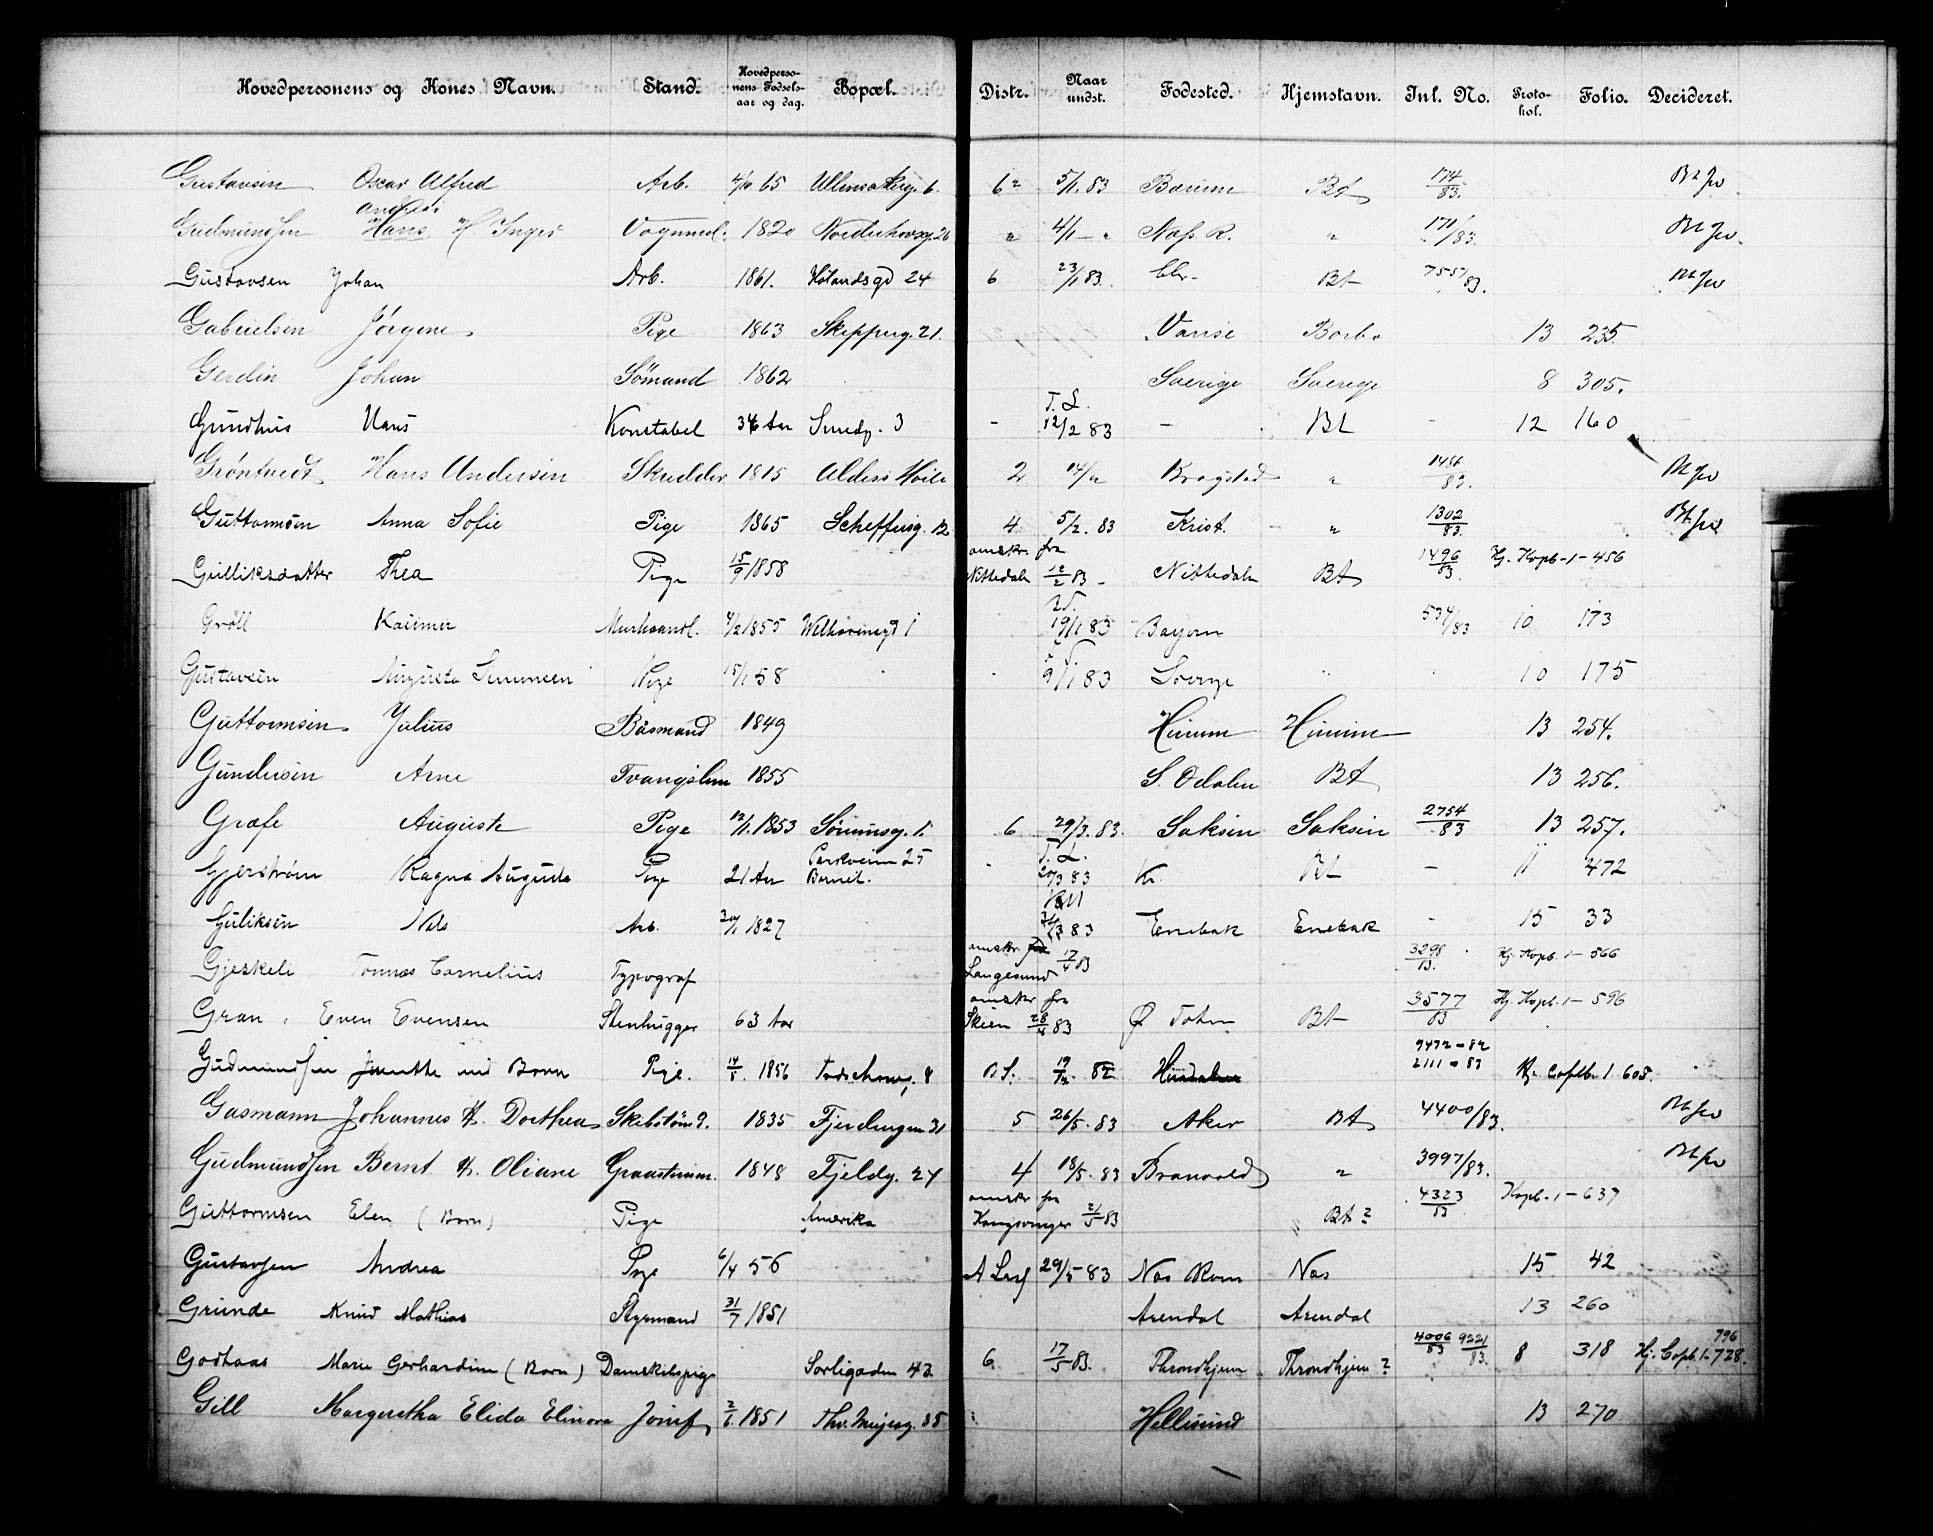 Hovedpersonens og Kones Navn. Stand. Hovedpersonens Fødselsaar og dag. Bopæl. Distr. Naar undst. Fødested. Hjemstavn. Inl. No. Protokol. Folio. Decideret.
Gustavsen Oscar Alfred Arb. 65 6 5/1. 83 Bt 174/83.
Gudmundsen Hans H. Inger 1820 4/1 Næs R. 171/83.
Gustavsen Johan Arb. 1861. Hölandsgd 24 6 23/1 83. Chr. Bt 83.
Gabrielsen Jörgine Pige 1863 Skipperg. 21. Vanse Borb. 13 235.
Gerdin Johan Sömand 1862 Sverige Sverige 8 305.
Gundhus Hans Konstabel 36 Aar Smedg. 3 - T. L. 12/2 83 - Bt - 12 160
Gröntvedt Hans Andersen Skrædder 1815 2 14/" Kragstad " 1486/83.
Guttormsen Anna Sofie Pige 1865 Scheffersg. 12 4 5/2. 83 Krist. - " 1302/83.
Gulliksdatter Thea Pige 15/9 1858 anmekr. fra Nittedalen 12/2 83 - Nittedalen Bt 1496/83. Hj. Kopb. 1 - 456
Gröll Kasimir 1855 1 19/1 83 Bayern 534/83 10 173
Gustavsen Augusta Pige 15/1 58 9/1 83 Sverge 10 175
Guttormsen Julius Baasmand 1849 Hurum Hurum 13 254.
Gundersen Arne Tvangslem 1855 S. Odalen Bt 13 256.
Grafe Auguste Pige 12/1. 1853 Sörumsg. 1. 6 29/3. 83. Saksen Saksen 2754/83 13 257.
Gjerström Ragna Augusta Pige 21 Aar Parkveien 25 T. L. 20/3 83 Kr. Bt - 11 472
Guliksen Nils Arb. 1827 31/3 83 Enebak Enebak - 15 33
Gjeskeli Tönnes Cornelius Typograf Langesund 17/4 83 3298/83. Hj. Kopb. 1 - 566
Gran, Even Evensen Stenhugger 63 Aar anmekr fra Skien 28/4 83 Ø Toten Bt 3577/83 Hj. Kopb. 1 - 596
Gudmundsen med Børn Pige. 14/8. 1856 8 19/12 82 9472 - 82
2111 - 83 Hj. Copib. 1. 608.
Gasmann Johannes H. Dorthea 1835 Fjerdingen 31 5 26/5. 83 Aker Bt 4400/83.
Gudmundsen Bernt H. Oliane 1848 Fjeldg. 24 4 18/5. 83 Branvold " 3997/83.
Guttormsen Elen (Børn) Pige Amerika Kongsvinger 21/5 83 Bt ? 4323/83 Kopb. 1 - 637
Gustavsen Andrea Pige 6/4 56 29/5 83 Nes Rom Nes 15 42
Grunde Knud Mathias Styrmand 31/7 1851 Arendal Arendal 13 260
Godtaas Marie Gerhardine (Børn) Damskibspige Sorligaden 43. 6 17/5 83. Throndhjem Throndhjem ? 4006/83 9221/83. 8 318 Hj. Copb. 1 - 728. 796
Gill Margretha Elida Elinora 2/6. 1851 Thv. Meyersg. 85 Hellesund 13 270